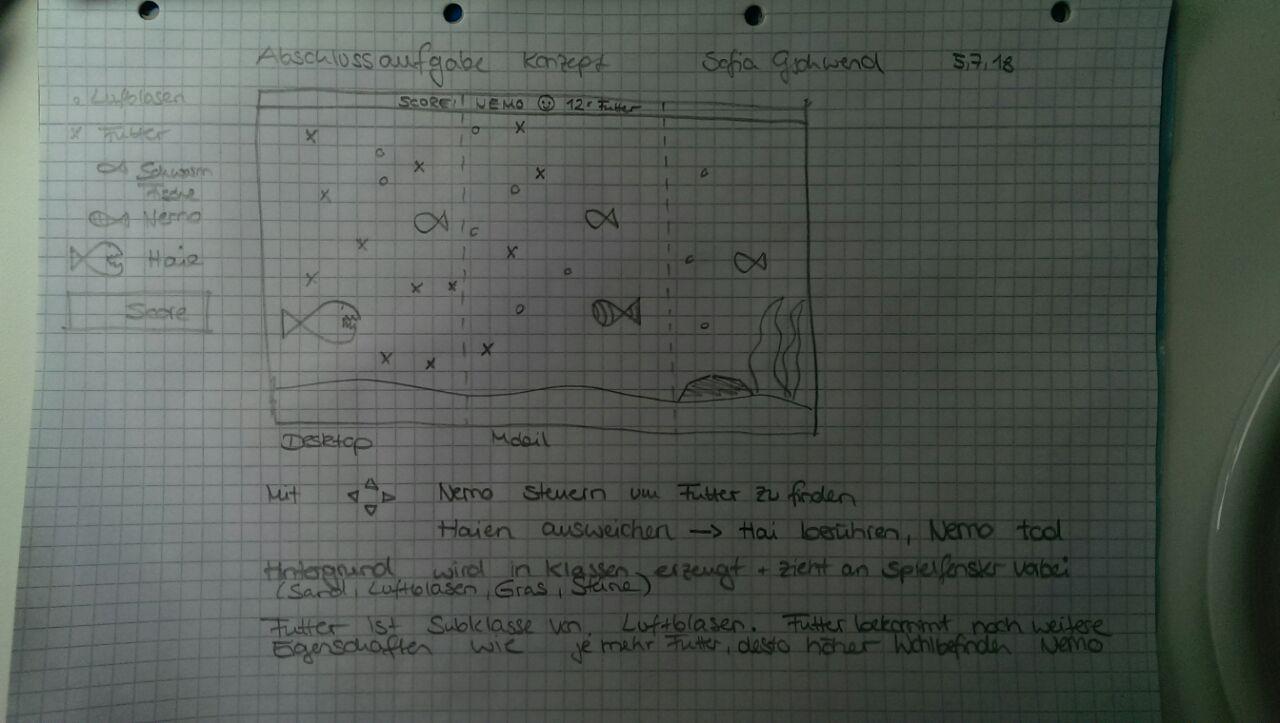 Abschlussaufgabe Konzept Sofia Gschwend 5.7.18
o Luftblasen
x Futter
Schwarm
Fische
Nemo
Haie
Score
SCORE: NEMO ☺ 12 Futter
Desktop Mobil
Mit Nemo steuern um Futter zu finden
Haien ausweichen → Hai berühren, Nemo tod
Hintergrund wird in Klassen erzeugt + zieht an Spielfenster vorbei
(Sand, Luftblasen, Gras, Steine)
Futter ist Subklasse von Luftblasen. Futter bekommt noch weitere
Eigenschaften wie je mehr Futter, desto höher Wohlbefinden Nemo